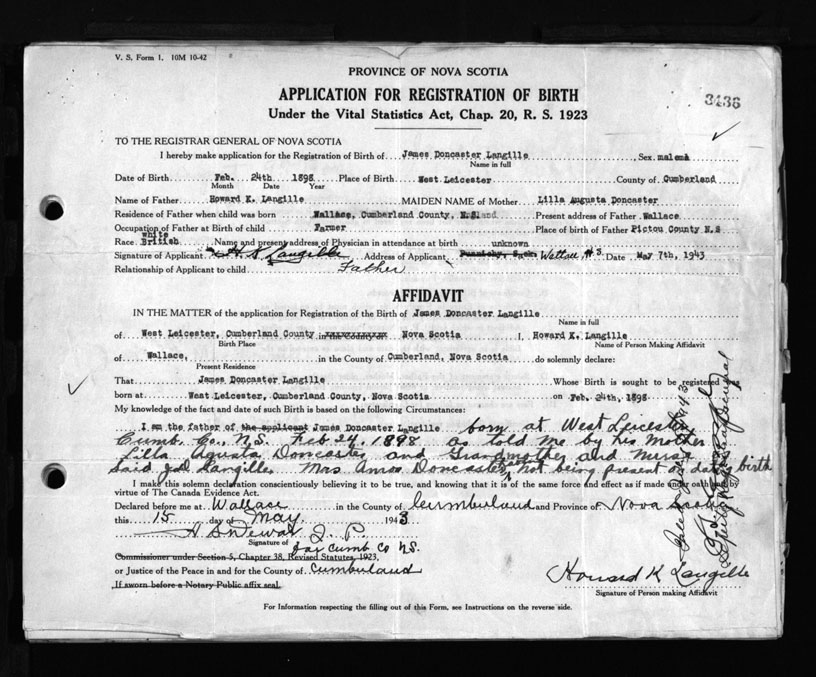 V. S. Form 1. 10M 10-42
PROVINCE OF NOVA SCOTIA
3436
APPLICATION FOR REGISTRATION OF BIRTH
Under the Vital Statistics Act, Chap. 20, R. S. 1923
TO THE REGISTRAR GENERAL OF NOVA SCOTIA
I hereby make application for the Registration of Birth of James Doncaster Langille, Sex male
Name in full
Date of Birth Feb. 24th 1898 Place of Birth West Leicester County of Cumberland
Month Date Year
Name of Father Howard K. Langille MAIDEN NAME of Mother Lilla Augusta Doncaster
Residence of Father when child was born Wallace, Cumberland County, N.S Present address of Father Wallace
Occupation of Father at Birth of child Farmer Place of birth of Father Pictou County N.S
white
Race British Name and present address of Physician in attendance at birth unknown
Signature of Applicant H. K. Langille Address of Applicant Wallace N S Date May 7th, 1943
Relationship of Applicant to child Father
AFFIDAVIT
IN THE MATTER of the application for Registration of Birth of James Doncaster Langille
Name in full
of West Leicester, Cumberland County in the County of Nova Scotia I, Howard K. Langille
Birth Place Name of Person Making Affidavit
of Wallace, in the County of Cumberland, Nova Scotia do solemnly declare:
Present Residence
That James Doncaster Langille Whose Birth is sought to be registered
born at West Leicester, Cumberland County, Nova Scotia on Feb. 24th, 1898
My knowledge of the fact and date of such Birth is based on the following Circumstances:
I am the father of the applicant James Doncaster Langille born at West Leicester
Cumb. Co. N.S. Feb 24, 1898 as told me by his mother
Lilla Agusta Doncaster and Grandmother and Nurse
Said J.D. Langille. Mrs. Amos Doncaster, not being present on date of birth
I make this solemn declaration consciously believing it to be true, and knowing that it is of the same force and effect as if made under oath and by
virtue of The Canada Evidence Act.
Declared before me at Wallace in the County of Cumberland and Province of Nova Scotia
this 15 day of May 1943
J. P.
Signature of
for Cumb Co N.S.
Commissioner under Section 5, Chapter 38, Revised Statutes, 1923,
or Justice of the Peace in and for the County of Cumberland
Howard K Langille
If sworn before a Notary Public affix seal.
Signature of Person making Affidavit
For Information respecting the filling out of this Form, see Instructions on the reverse side.